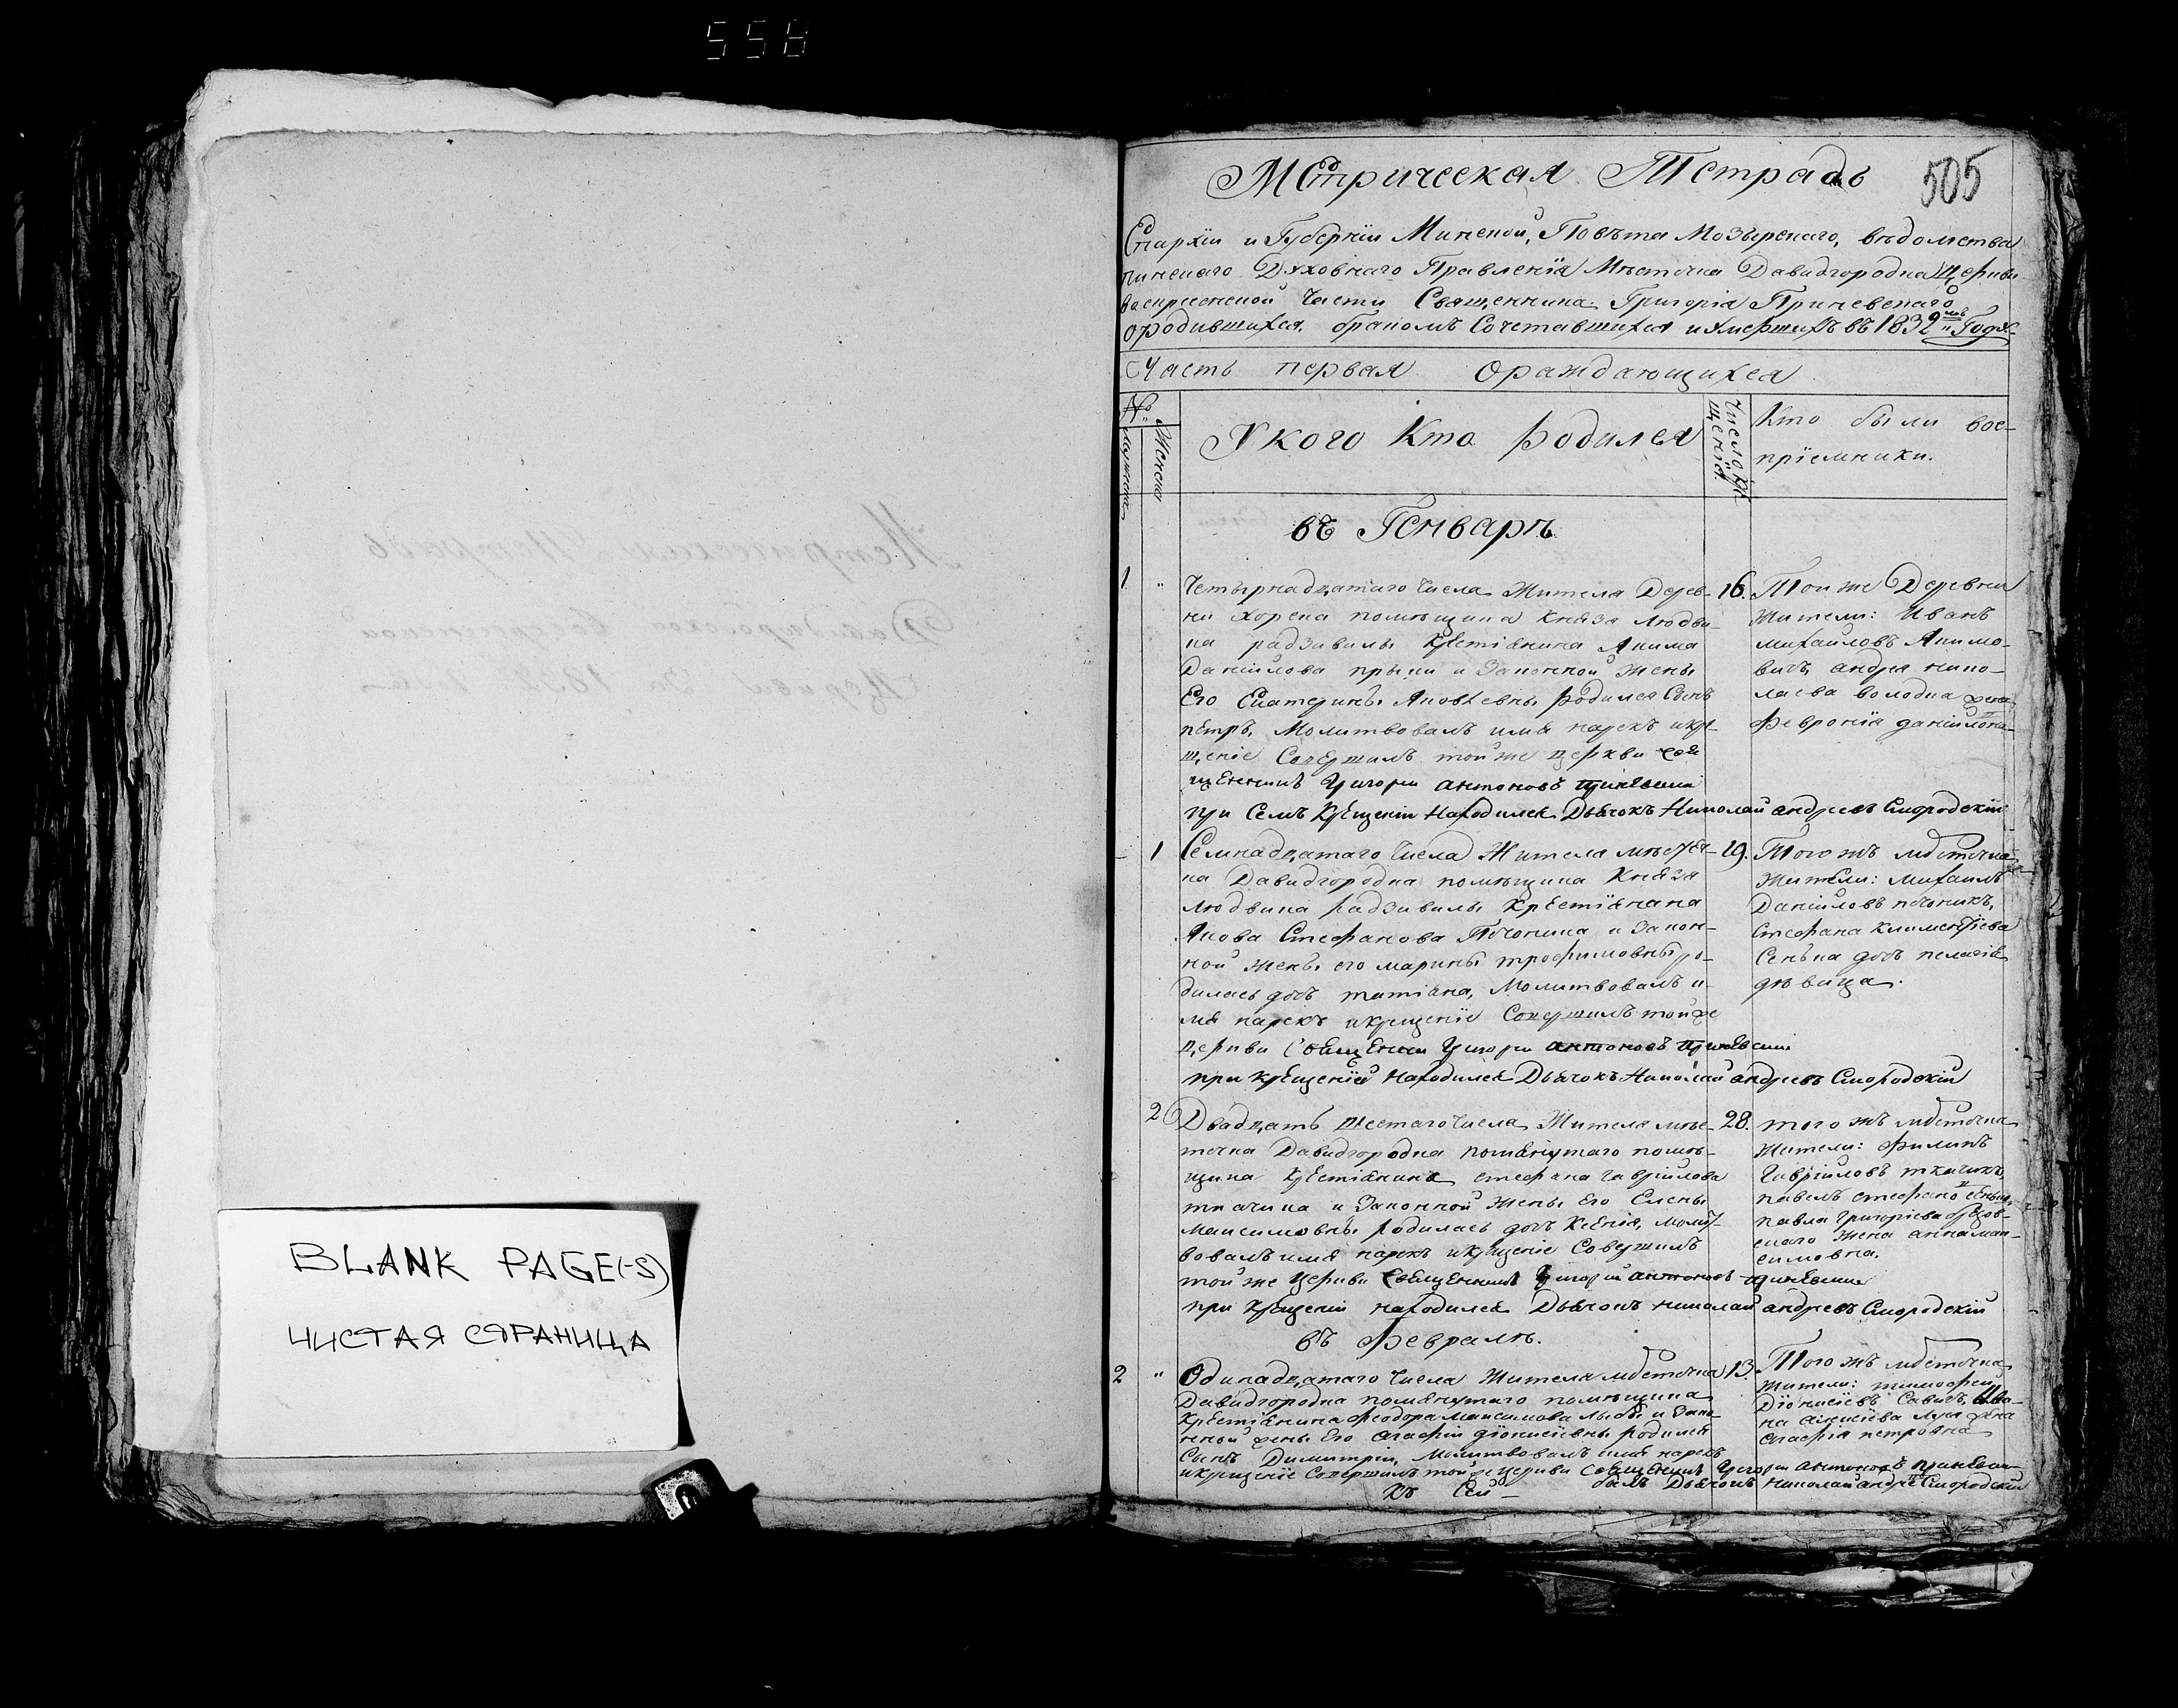 558
BLANK PAGE(-S)
ЧИСТАЯ СТРАНИЦА
Метрическая Тетрадь
505
Епархіи и Губерніи Минской, Повѣта Мозырскаго, вѣдомства
пинскаго Духовнаго Правленія Мѣстечка Давидгородка Церкви
воскресенской Части Священника Григорія
ородившихся, бракомъ Сочетавшихся иумершихъ въ 1832мъ Годѣ
Часть первая ораждающихся
№
мужеска
Женска
У кого Кто родился
Число кре-
щенія.
Кто были вос-
пріемники.
въ Генварѣ
1 " Четырнадцатаго Числа Жителя Дерев-
ни хорска помѣщика Князя Людви-
ка радзивила крестіянина Якима
Даніилова и Законной жены
Его Екатерины Яковлевны родился Сынъ
петръ, Молитвовалъ имя нарекъ икре-
щеніе Совершилъ тойже церкви свя
щенникъ Григори антоновъ
при Семъ Крещеніи Находился Дьячокъ Николай андреевъ Смородскій
16. Той же Деревни
жители: Иванъ
михаиловъ Акимо-
вичъ, андрея нико-
лаева володка жена
Февронія даніилова
1 Семнадцатаго Числа Жителя мѣстеч-
ка Давидгородка помѣщика Князя
Людвика радзивила крестіянина
Якова Стефанова и закон-
ной жены его марины трофимовны ро-
дилась дочь татіяна, Молитвовалъ и-
мя нарекъ икрещеніе Совершилъ тойже
церкви Священник Григори антоновъ
при крещеніи Находился Дьячокъ Николай андреевъ Смородскій
19. Того жъ мѣстечка
жители: михаилъ
Даніиловъ
Стефана Климентіева
Сенька дочь пелагія
дѣвица.
2 Двадцать шестаго Числа Жителя мѣс-
течка Давидгородка помянутаго помѣ-
щика крестіянина стефана гавріилова
ткачика и Законной жены Его Елены
максимовны родилась дочь Ксенія, молит-
вовалъ имя нарекъ икрещеніе Совершилъ
той же Церкви Священникъ Григорій антоновъ
при Крещеніи находился Дьячокъ николай андреевъ Смородскій
28. того жъ мѣстечка
жители: филипъ
Гавріиловъ ткачикъ,
павелъ
павла григоріева
скаго жена анна мак-
симовна.
въ Февралѣ.
2 " Одинадцатаго Числа жителя мѣстечка
Давидгородка помянутаго помѣщика
крестіянина феодора максимова и Зако-
нной жены Его агафіи діонисіевны родился
Сынъ Димитрій, Молитвовалъ имя нарекъ
икрещеніе Совершилъ тойже церкви Священникъ Григори антоновъ
былъ Дьячокъ Николай Смородскій
13. Того жъ мѣстечка
жители: тимофей
Діонисіевъ Савичъ, Ива-
на жена
агафія петровна